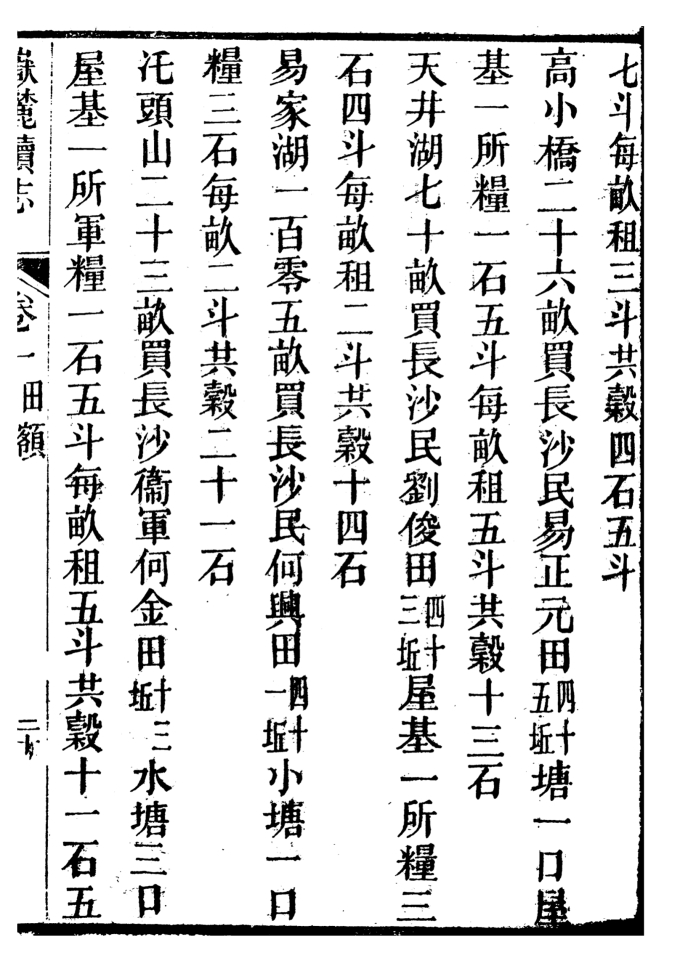 七斗每畝租三斗共穀四石五斗
高小橋二十六畝買長沙民易正元田四十五坵塘一口屋
基一所糧一石五斗每畝租五斗共穀十三石
天井湖七十畝買長沙民劉俊田四十三坵屋基一所糧三
石四斗每畝租二斗共穀十四石
易家湖一百零五畝買長沙民何興田四十一坵小塘一口
糧三石每畝二斗共穀二十一石
汑頭山二十三畝買長沙衞軍何金田十三坵水塘三口
屋基一所軍糧一石五斗每畝租五斗共穀十一石五
嶽麓續志 卷一 田額